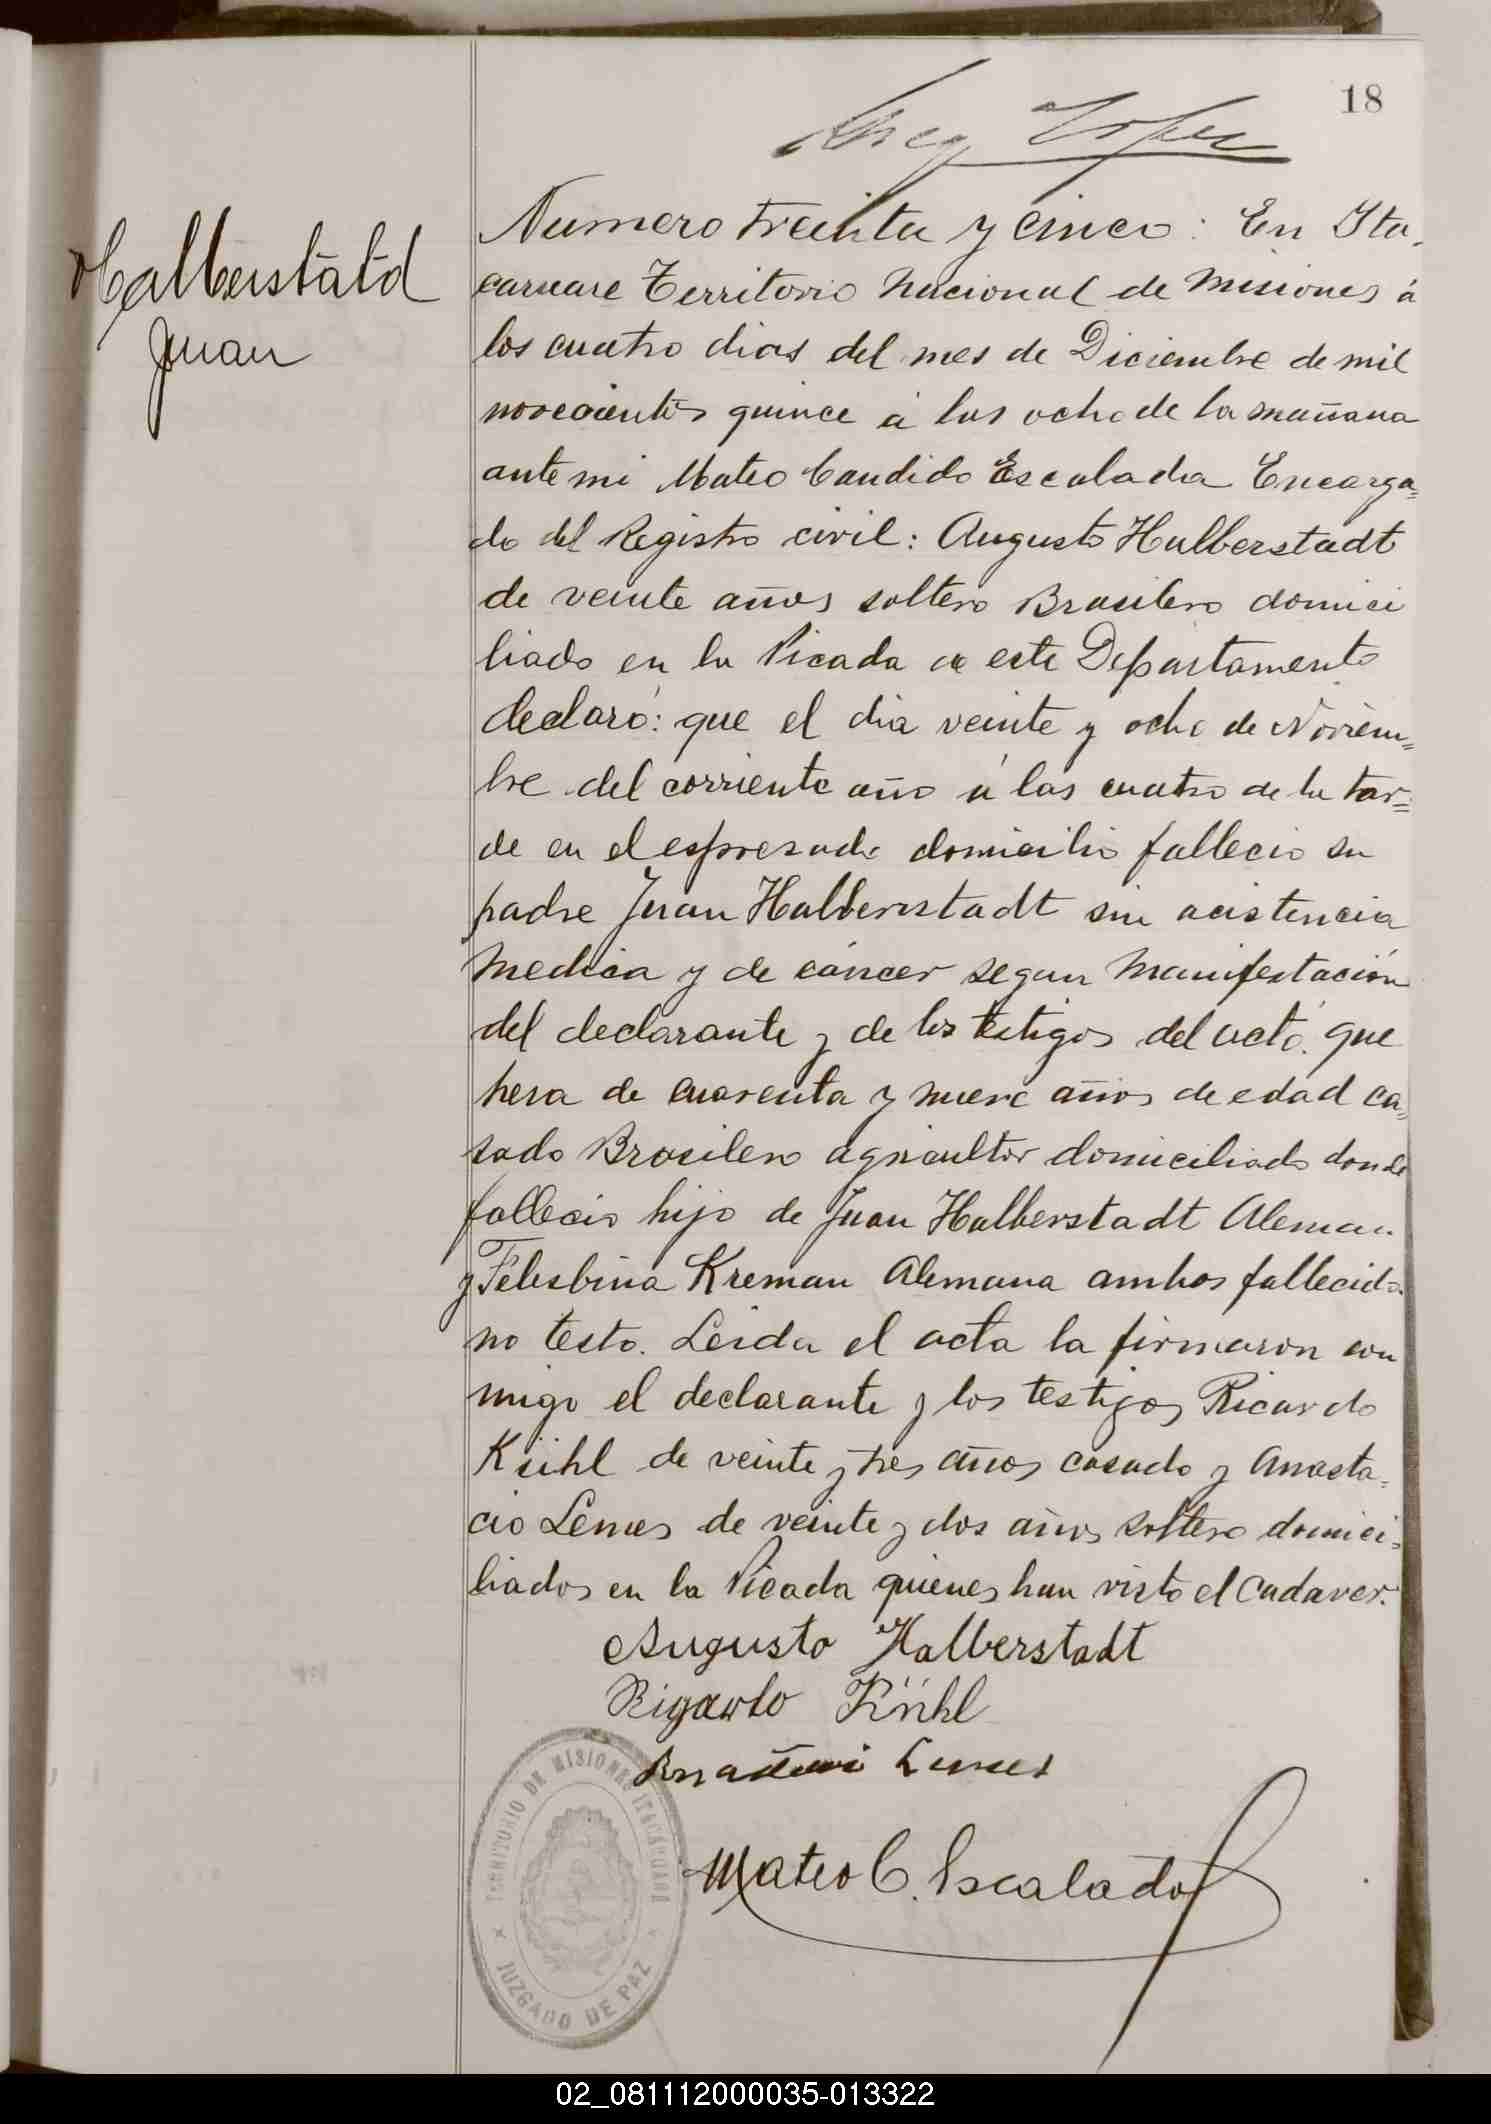 18
Halberstatd
Juan
Numero treinta y cinco: En Ita,
caruare Territorio Nacional de Misiones á
los cuatro dias del mes de Diciembre de mil
novecientos quince á las ocho de la mañana
ante mi Mateo Candido Escalada Encarga=
do del Registro civil: Augusto Halberstadt
de veinte años soltero Brasilero domici
liado en la Picada de este Departamento
declaró: que el dia veinte y ocho de Noviem=
bre del corriente año á las cuatro de la tar=
de en el espresado domicilio fallecio su
padre Juan Halberstadt sin acistencia
Medica y de cáncer segun Manifestación
del declarante y de los testigos del acto. que
hera de cuarenta y nueve años de edad ca=
sado Brasilero agricultor domiciliado donde
fallecio hijo de Juan Halberstadt Aleman
y Felesbina Kreman Alemana ambos fallecidos
no testo. Leida el acta la firmaron con
migo el declarante y los testigos Ricardo
Kühl de veinte y tres años casado y Anasta=
cio Lemes de veinte y dos años soltero domici=
liados en la Picada quienes han visto el cadaver.
Augusto Halberstadt
Rigardo Kühl
Lemes
Mateo C. Escalada
TERRITORIO DE MISIONES ITACARUARE
JUZGADO DE PAZ
02_081112000035-013322